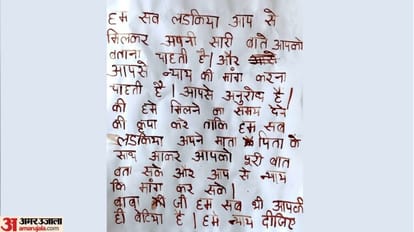 हम सब लडकिया आप से
मिलकर अपनी सारी बाते आपको
बताना चाहती है। और
आपसे न्याय की मांग करना
चाहती है। आपसे अनुरोध है।
की हमे मिलने का समय देने
की कृपा कर ताकि हम सब
लडकिया अपने माता पिता के
साथ आकर आपको पुरी बात
बता सके और आप से न्याय
कि मांग कर सके।
बाबा जी हम सब भी आपकी
ही बेटिया है। हमे न्याय दीजिए
अमरउजाला
amarujala.com